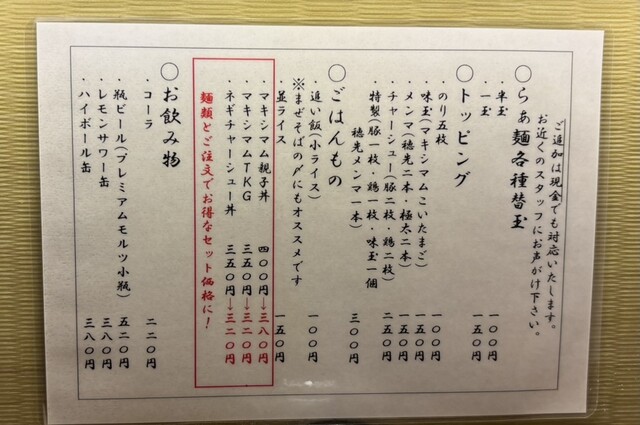 ご追加は現金でも対応いたします。
お近くのスタッフにお声がけ下さい。
○らぁ麺各種替玉
・半玉 一〇〇円
・一玉 一五〇円
○トッピング
・のり五枚 一〇〇円
・味玉(マキシマムこいたまご) 一五〇円
・メンマ(穂先二本・極太二本) 一五〇円
・チャーシュー(豚二枚・鶏二枚) 二五〇円
・特製(豚一枚・鶏一枚・味玉一個
穂先メンマ一本) 三〇〇円
○ごはんもの
・追い飯(小ライス) 一〇〇円
※まぜそばの〆にもオススメです
・並ライス 一五〇円
・マキシマム親子丼 四〇〇円→三八〇円
・マキシマムTKG 三五〇円→三二〇円
・ネギチャーシュー丼 三五〇円→三二〇円
麺類とご注文でお得なセット価格に!
○お飲み物
・コーラ 二二〇円
・瓶ビール(プレミアムモルツ小瓶) 五二〇円
・レモンサワー缶 三八〇円
・ハイボール缶 三八〇円